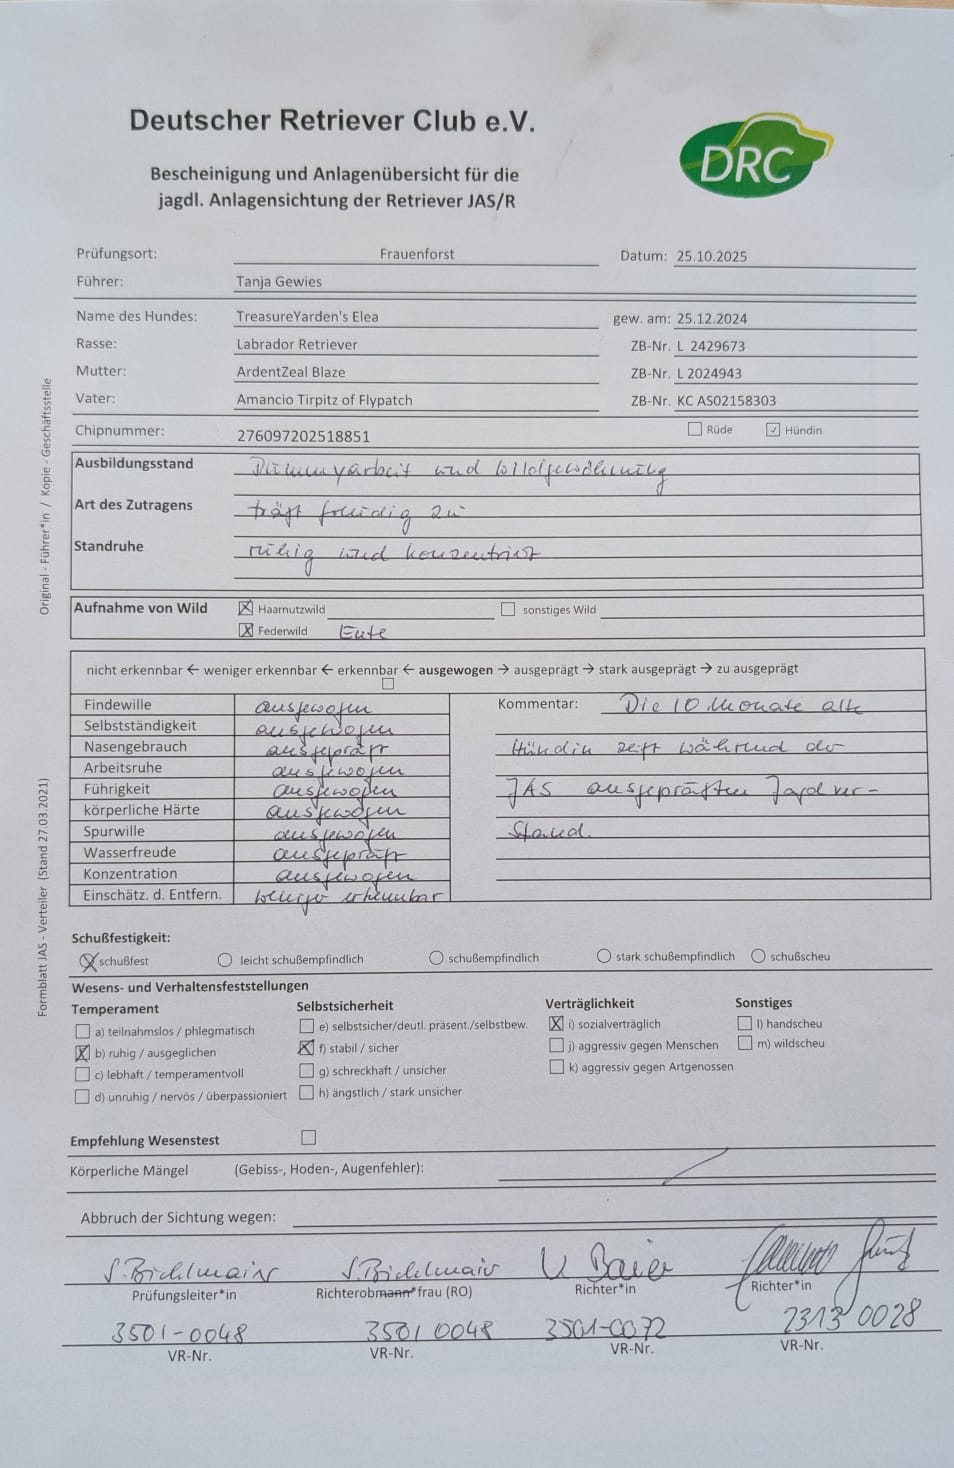 Deutscher Retriever Club e.V.
DRC
Bescheinigung und Anlagenübersicht für die
jagdl. Anlagensichtung der Retriever JAS/R
Prüfungsort: Frauenforst Datum: 25.10.2025
Führer: Tanja Gewies
Name des Hundes: TreasureYarden's Elea gew. am: 25.12.2024
Rasse: Labrador Retriever ZB-Nr. L 2429673
Mutter: ArdentZeal Blaze ZB-Nr. L 2024943
Vater: Amancio Tirpitz of Flypatch ZB-Nr. KC AS02158303
Chipnummer: 276097202518851 Rüde Hündin
Ausbildungsstand Dummyarbeit und Wildgewöhnung
Art des Zutragens trägt freudig zu
Standruhe ruhig und konzentriert
Aufnahme von Wild Haarnutzwild sonstiges Wild
Federwild Ente
nicht erkennbar ← weniger erkennbar ← erkennbar ← ausgewogen → ausgeprägt → stark ausgeprägt → zu ausgeprägt
Findewille ausgewogen Kommentar: Die 10 Monate alte
Selbstständigkeit ausgewogen
Nasengebrauch ausgeprägt Hündin zeigt während der
Arbeitsruhe ausgewogen
Führigkeit ausgewogen JAS ausgeprägten Jagdver-
körperliche Härte ausgewogen
Spurwille ausgewogen stand.
Wasserfreude ausgeprägt
Konzentration ausgewogen
Einschätz. d. Entfern. weniger erkennbar
Schußfestigkeit:
schußfest leicht schußempfindlich schußempfindlich stark schußempfindlich schußscheu
Wesens- und Verhaltensfeststellungen
Temperament Selbstsicherheit Verträglichkeit Sonstiges
a) teilnahmslos / phlegmatisch e) selbstsicher/deutl. präsent./selbstbew. i) sozialverträglich l) handscheu
b) ruhig / ausgeglichen f) stabil / sicher j) aggressiv gegen Menschen m) wildscheu
c) lebhaft / temperamentvoll g) schreckhaft / unsicher k) aggressiv gegen Artgenossen
d) unruhig / nervös / überpassioniert h) ängstlich / stark unsicher
Empfehlung Wesenstest
Körperliche Mängel (Gebiss-, Hoden-, Augenfehler):
Abbruch der Sichtung wegen:
S. Bichlmaier S. Bichlmaier U. Baier
Prüfungsleiter*in Richterobmann*frau (RO) Richter*in Richter*in
3501-0048 3501 0048 3501-0072 2313 0028
VR-Nr. VR-Nr. VR-Nr. VR-Nr.
Original - Führer*in / Kopie - Geschäftsstelle
Formblatt JAS - Verteiler (Stand 27.03.2021)